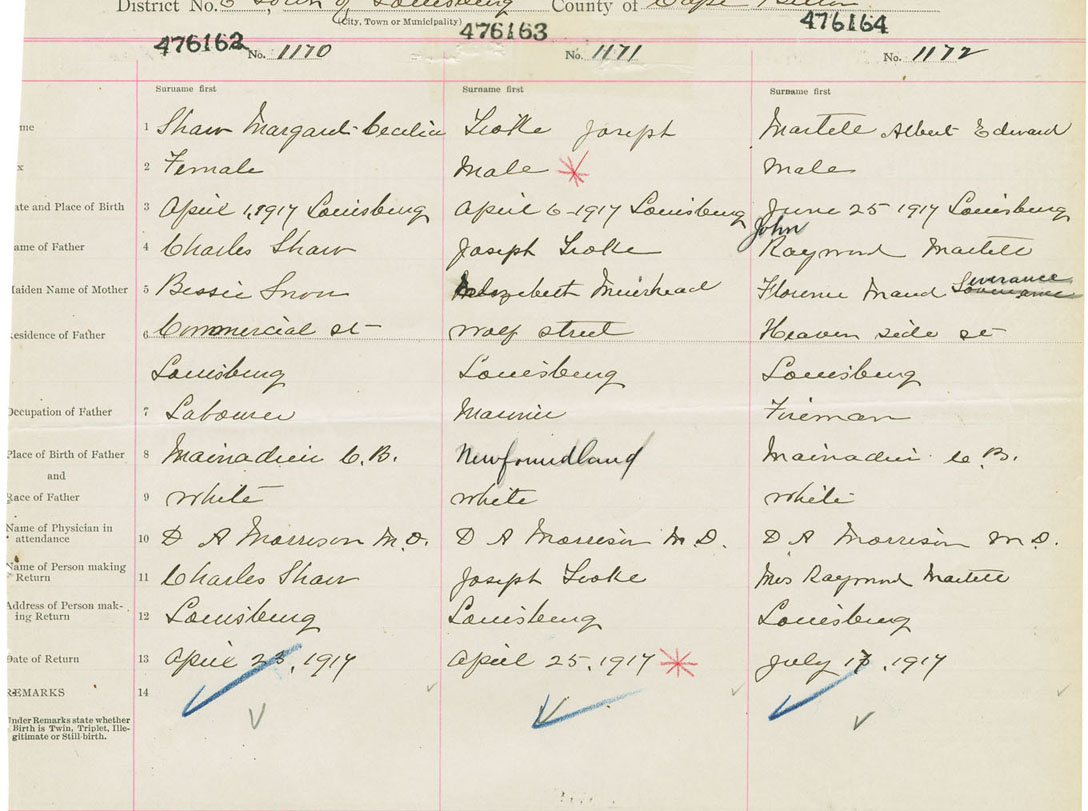 District No. 6 Town of Louisburg County of Cape Breton
(City, Town or Municipality)
476162 476163 476164
No. 1170 No. 1171 No. 1172
Surname first Surname first Surname first
me 1 Shaw Margaret Cecilia Joseph Martell Albert Edward
x 2 Female Male Male
ate and Place of Birth 3 April 1, 1917 Louisburg April 6-1917 Louisburg June 25 1917 Louisburg
John
ame of Father 4 Charles Shaw Joseph Raymond Martell
aiden Name of Mother 5 Bessie Snow Elizabeth Muirhead Florence Maud Severance
esidence of Father 6 Commercial st Wolf street Heaven side st
Louisburg Louisburg Louisburg
Occupation of Father 7 Labourer Marine Fireman
Place of Birth of Father 8 Mainadieu C.B. Newfoundland Mainadieu C.B.
and
Race of Father 9 White White White
Name of Physician in
attendance 10 D A Morrison M.D. D A Morrison M.D. D A Morrison M D.
Name of Person making
Return 11 Charles Shaw Joseph Mrs Raymond Martell
Address of Person mak-
ing Return 12 Louisburg Louisburg Louisburg
Date of Return 13 April 23, 1917 April 25, 1917 July 17, 1917
REMARKS 14
Under Remarks state whether
Birth is Twin, Triplet, Ille-
gitimate or Still-birth.